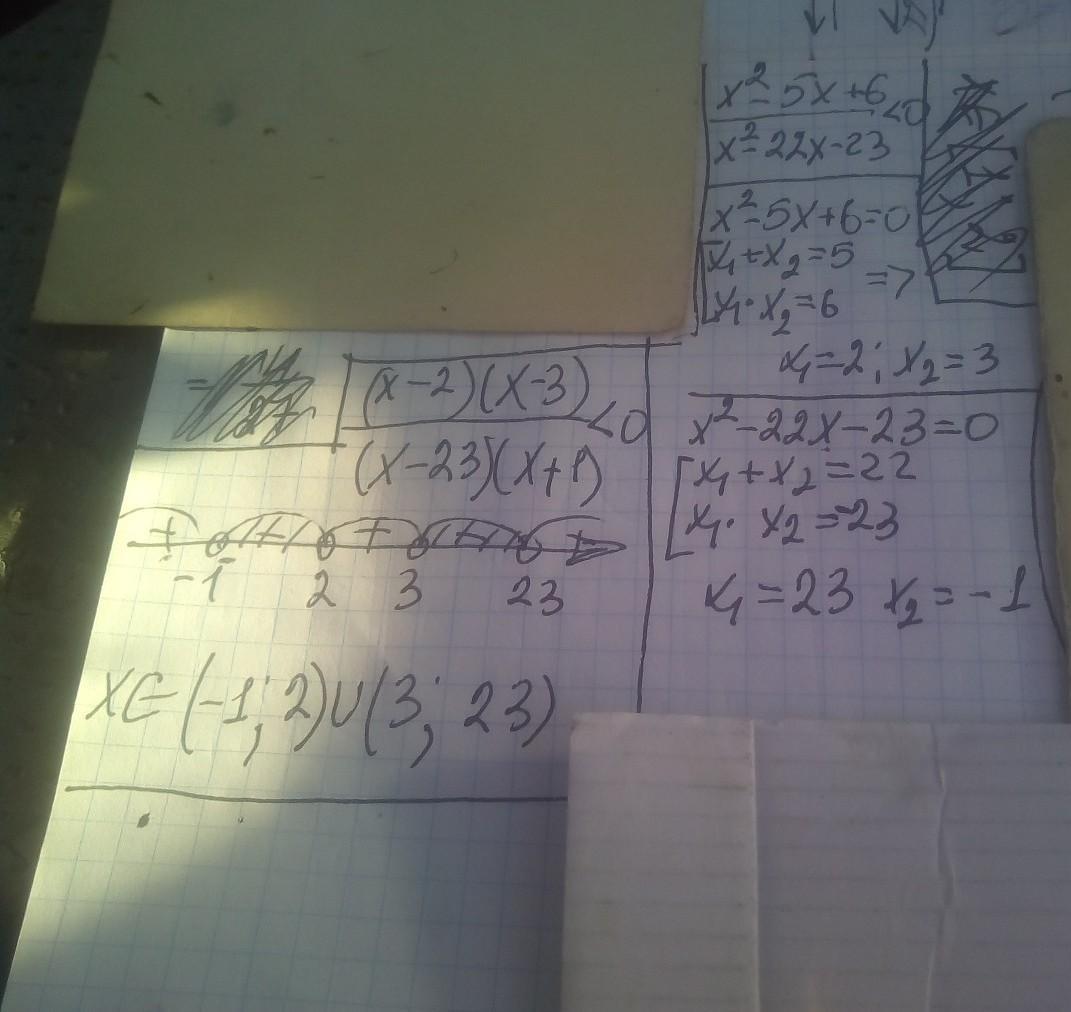 x²-5x+6
<0
x²-22x-23
x²-5x+6=0
x₁+x₂=5
=>
x₁·x₂=6
x₁=2; x₂=3
x²-22x-23=0
x₁+x₂=22
x₁· x₂=-23
x₁=23 x₂=-1
=
(x-2)(x-3)
<0
(x-23)(x+1)
+ + +
-1 2 3 23
x∈(-1; 2)∪(3; 23)